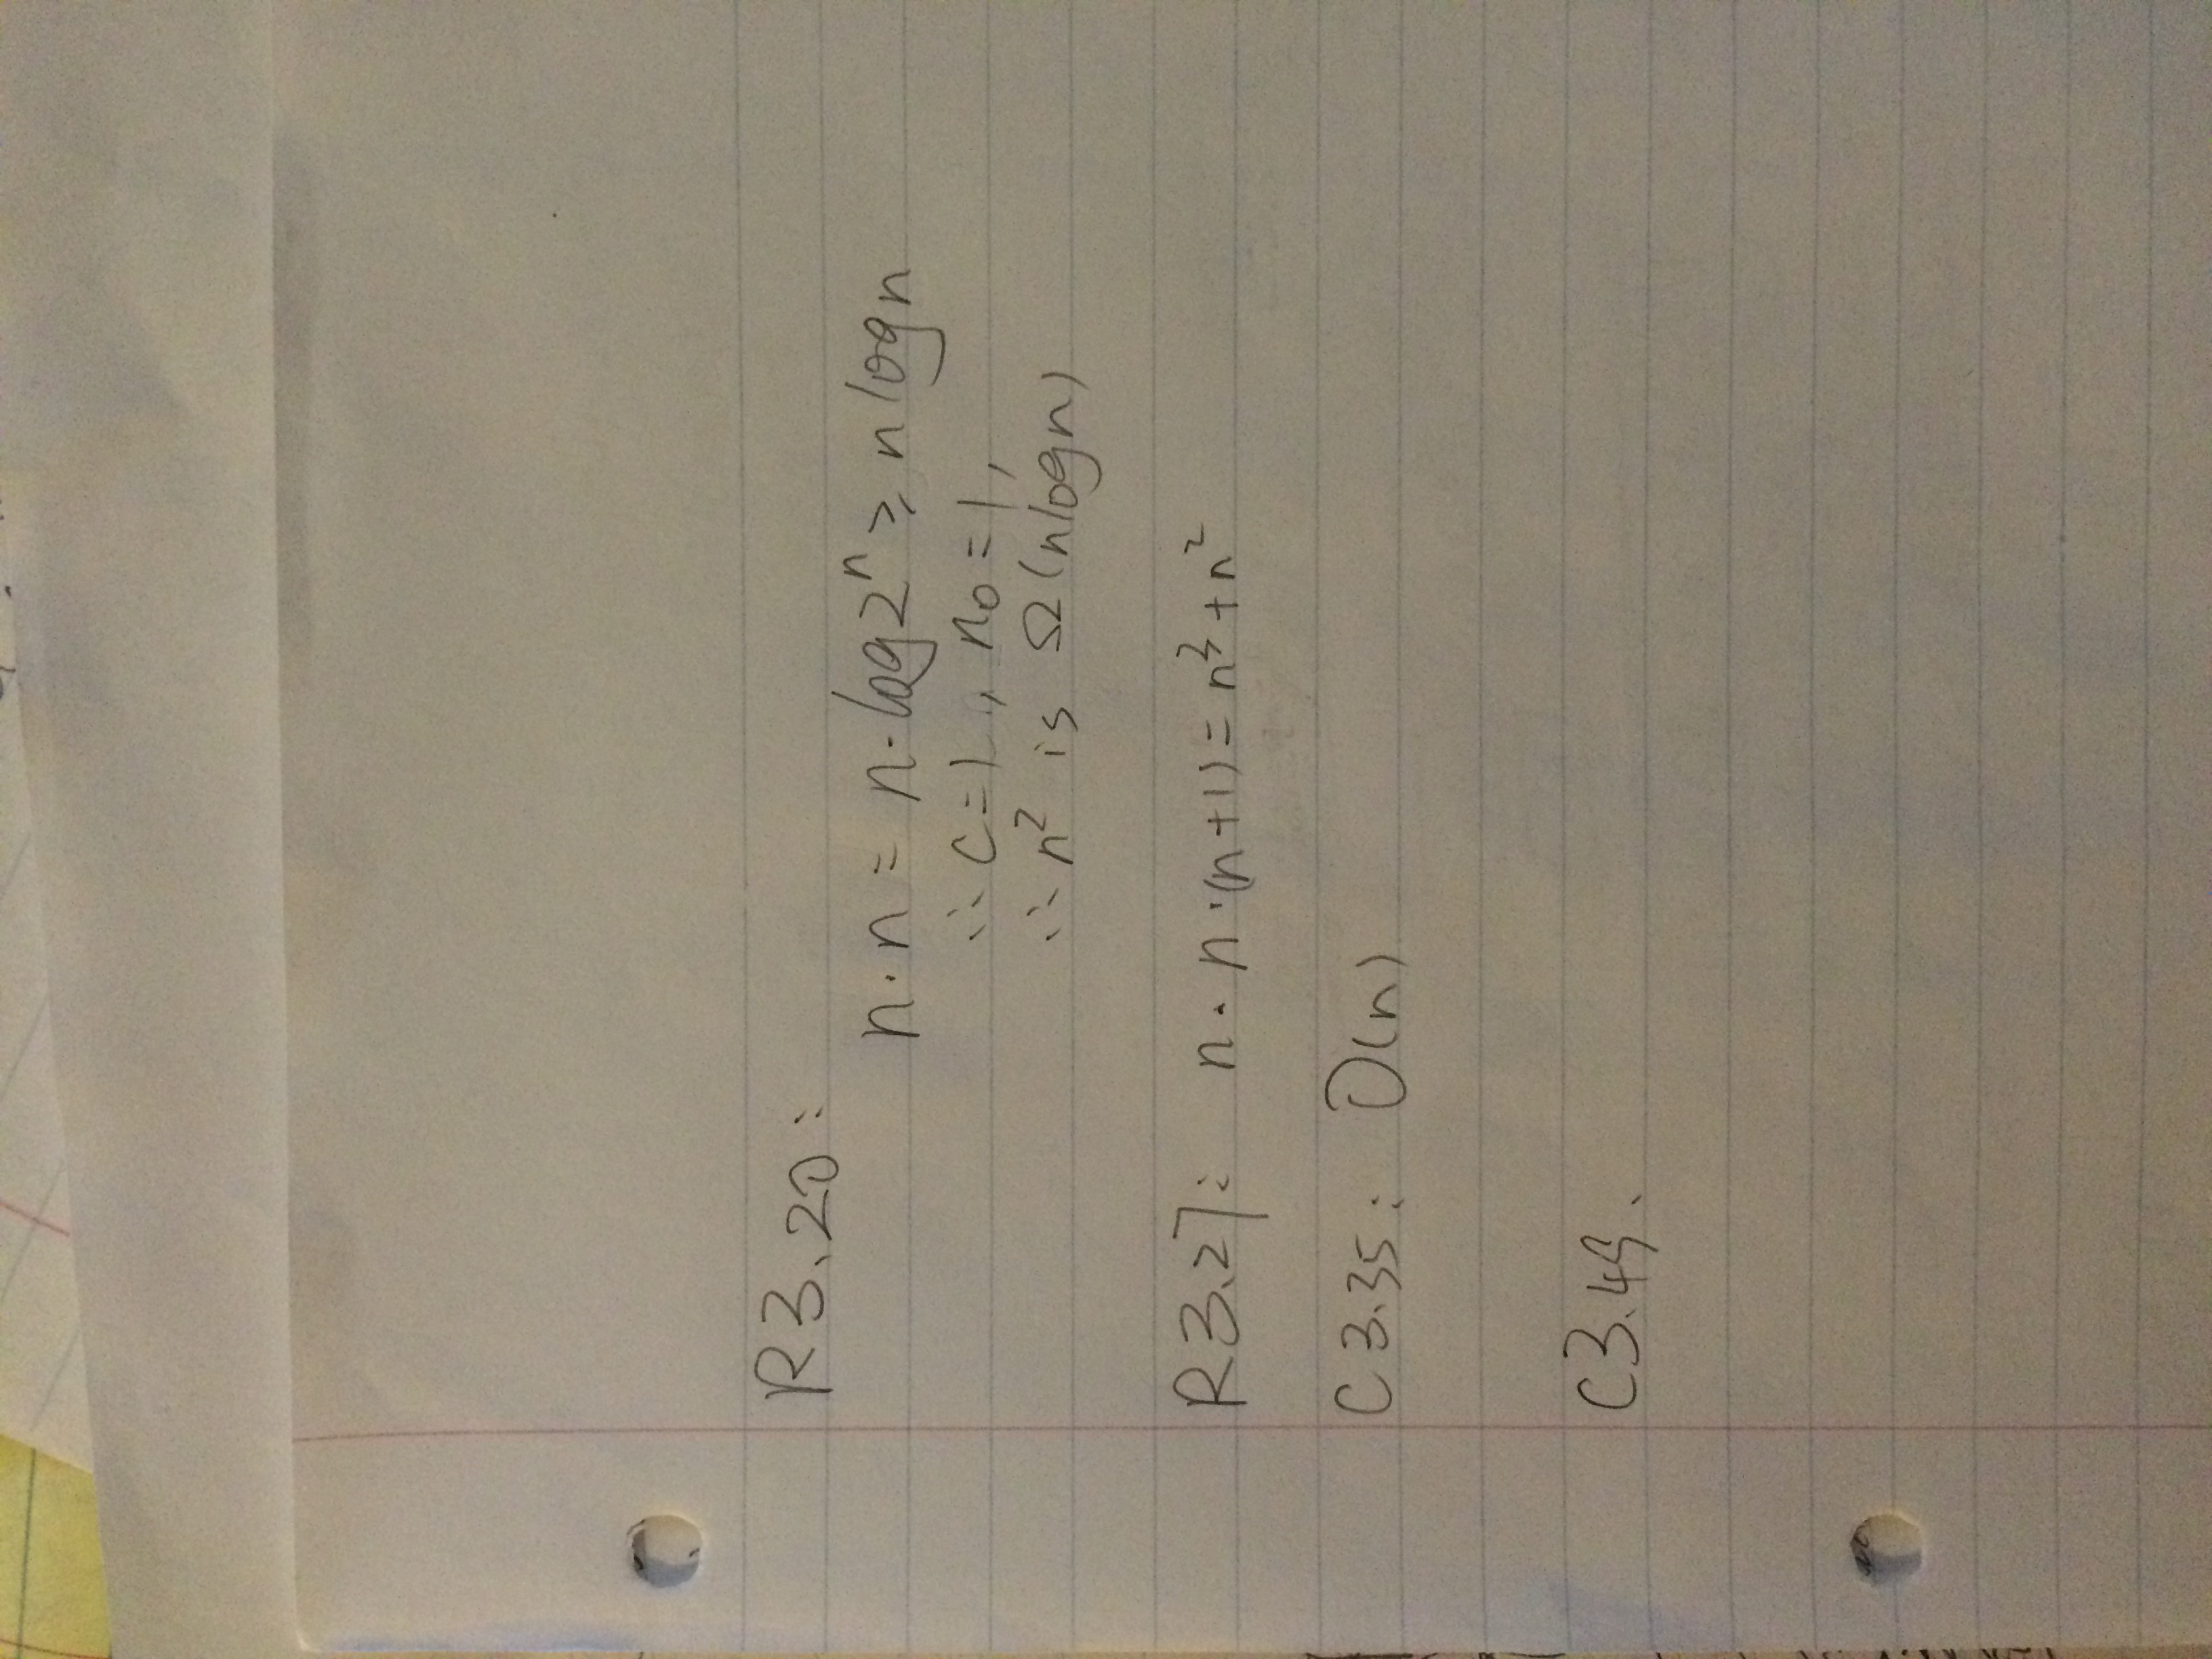 R3.20:
n·n = n·log2ⁿ ≥ nlogn
∴ c=1, n₀=1,
∴ n² is Ω(nlogn)
R3.27: n·n·(n+1)=n³+n²
C3.35: O(n)